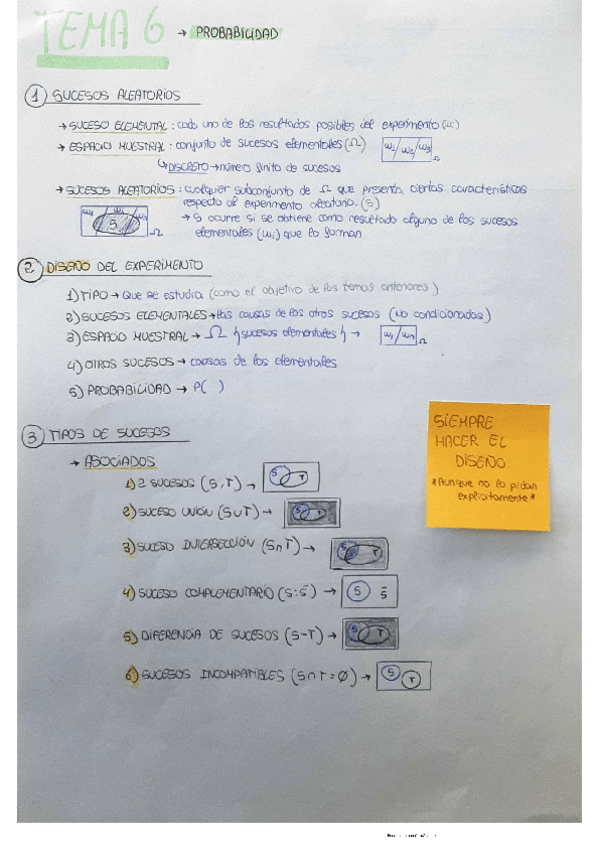 TEMA 6 → PROBABILIDAD
① SUCESOS ALEATORIOS
→ SUCESO ELEMENTAL: cada uno de los resultados posibles del experimento (ωi)
→ ESPACIO MUESTRAL: conjunto de sucesos elementales (Ω) ω1/ω2/ω3 Ω
↳ DISCRETO → número finito de sucesos
→ SUCESOS ALEATORIOS: cualquier subconjunto de Ω que presenta ciertas características
respecto al experimento aleatorio. (S)
S Ω → S ocurre si se obtiene como resultado alguno de los sucesos
elementales (ωi) que lo forman
② DISEÑO DEL EXPERIMENTO
1) TIPO → Que se estudia (como el objetivo de los temas anteriores)
2) SUCESOS ELEMENTALES → las causas de los otros sucesos (No condicionados)
3) ESPACIO MUESTRAL → Ω {sucesos elementales} → ω1/ωn Ω
4) OTROS SUCESOS → causas de los elementales
5) PROBABILIDAD → P( )
SIEMPRE
HACER EL
DISEÑO.
*Aunque no lo pidan
explícitamente*
③ TIPOS DE SUCESOS
→ ASOCIADOS
1) 2 SUCESOS (S, T) → S T
2) SUCESO UNIÓN (S∪T) → S T
3) SUCESO INTERSECCIÓN (S∩T) → S T
4) SUCESO COMPLEMENTARIO (S: S̄) → S S̄
5) DIFERENCIA DE SUCESOS (S-T) → S T
6) SUCESOS INCOMPATIBLES (S∩T = Ø) → S T